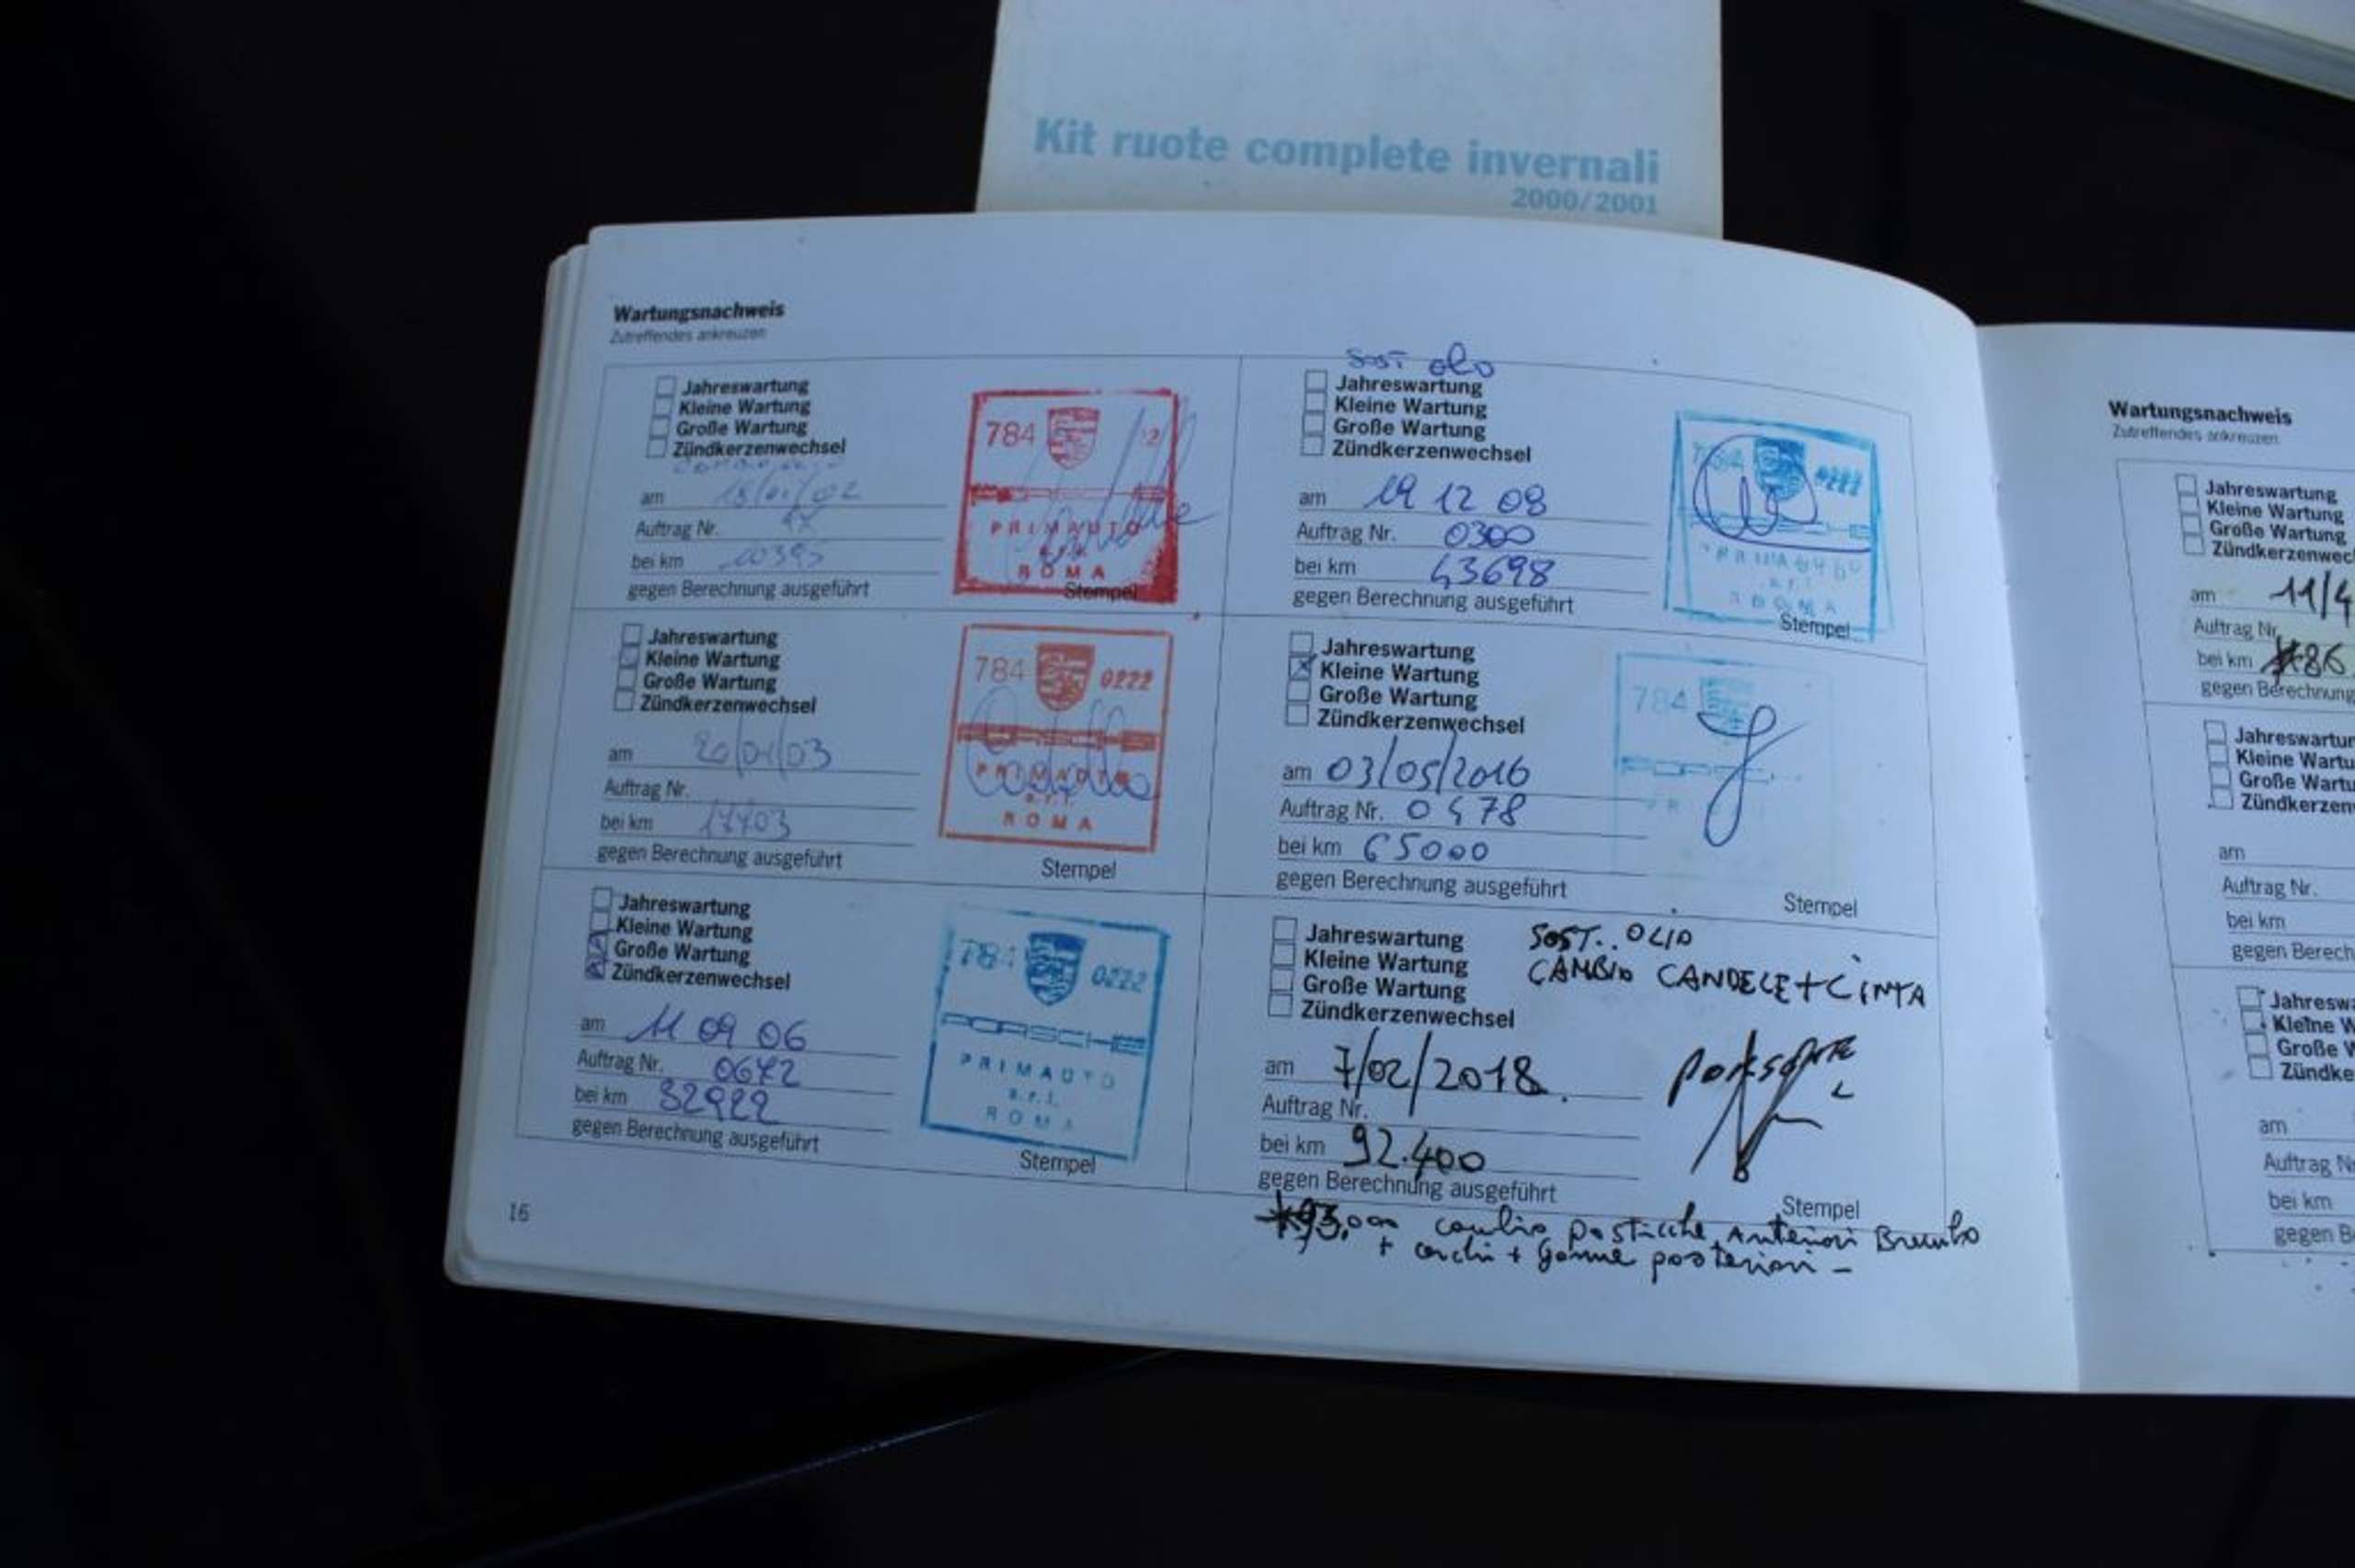 Kit ruote complete invernali
2000/2001
Wartungsnachweis
Zutreffendes ankreuzen
Jahreswartung
Kleine Wartung
Große Wartung
Zündkerzenwechsel
am 18/01/02
Auftrag Nr.
bei km 10395
gegen Berechnung ausgeführt
784
PRIMAUTO
s.r.l.
ROMA
Stempel
Jahreswartung
Kleine Wartung
Große Wartung
Zündkerzenwechsel
am
Auftrag Nr.
bei km
gegen Berechnung ausgeführt
784 0222
PRIMAUTO
s.r.l.
ROMA
Stempel
Jahreswartung
Kleine Wartung
Große Wartung
Zündkerzenwechsel
am 11 09 06
Auftrag Nr.
bei km 32922
gegen Berechnung ausgeführt
784 0222
PORSCHE
PRIMAUTO
s.r.l.
ROMA
Stempel
16
SOST
Jahreswartung
Kleine Wartung
Große Wartung
Zündkerzenwechsel
am 19 12 08
Auftrag Nr. 0300
bei km 43698
gegen Berechnung ausgeführt
0222
PRIMAUTO
s.r.l.
ROMA
Stempel
Jahreswartung
Kleine Wartung
Große Wartung
Zündkerzenwechsel
am 03/05/2016
Auftrag Nr. 0478
bei km 65000
gegen Berechnung ausgeführt
784
Stempel
Jahreswartung
Kleine Wartung
Große Wartung
Zündkerzenwechsel
SOST. OLIO
CAMBIO CANDELE + CINTA
am 7/02/2018.
Auftrag Nr.
bei km 92.400
gegen Berechnung ausgeführt
Stempel
*93.000 cambio pasticche Anteriori Brembo
+ cerchi + gomme posteriori -
Wartungsnachweis
Zutreffendes ankreuzen
Jahreswartung
Kleine Wartung
Große Wartung
Zündkerzenwec
am 11/4
Auftrag Nr.
bei km *86.
gegen Berechnung
Jahreswartun
Kleine Wartu
Große Wartu
Zündkerzen
am
Auftrag Nr.
bei km
gegen Berech
Jahreswa
Kleine W
Große W
Zündke
am
Auftrag N
bei km
gegen B